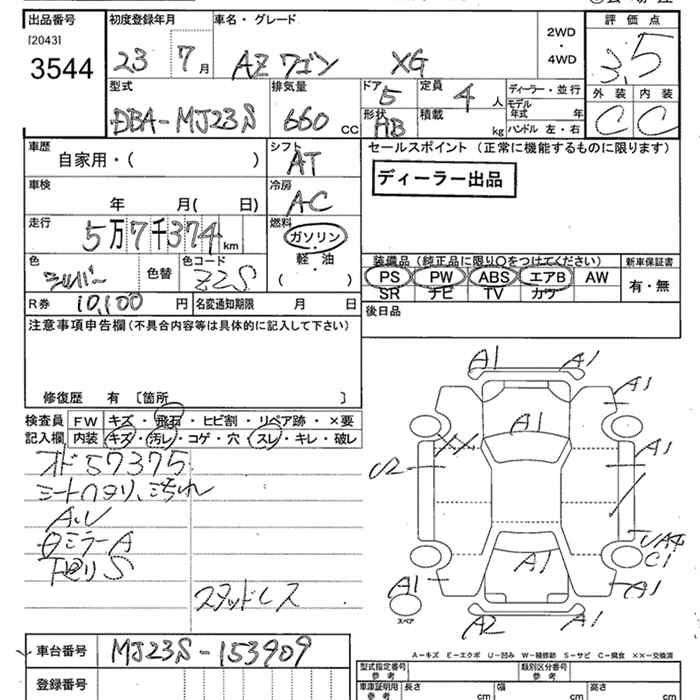 出品番号 初度登録年月 車名・グレード 評価点
[2043]
3544
23 7月 AZワゴン XG
2WD
・
4WD
3.5
外装 内装
C C
型式 排気量 ドア 定員 ディーラー・並行
DBA-MJ23S 660 CC 5 4人
モデル年式 年
形状 積載 ハンドル 左・右
HB kg
車歴 シフト セールスポイント (正常に機能するものに限ります)
自家用・( ) AT
ディーラー出品
車検 冷房
年 月( 日) AC
走行 燃料
5万7千374km ガソリン
・
軽・油
( )
色 色替 色コード
シルバー Z2S
装備品 (純正品に限り○をつけてください) 新車保証書
PS PW ABS エアB AW 有・無
SR ナビ TV カワ
R券 10,100円 名変通知期限 月 日
後日品
注意事項申告欄(不具合内容等は具体的に記入して下さい)
修復歴 有 [箇所 ]
検査員 FW キズ・飛石・ヒビ割・リペア跡・×要
記入欄 内装 キズ・汚レ・コゲ・穴・スレ・キレ・破レ
オド57375
シートヘタリ、汚れ
A,U
ミラーA
下廻りS
スタッドレス
A1 A1
A1
A1
XX A1
U2
UA4
C1
A1 A1
A1
スペア
A2 A1
A-キズ E-エクボ U-凹み W-補修跡 S-サビ C-腐食 ××-交換済
車台番号 MJ23S-153909
登録番号
型式指定番号 参考 類別区分番号 参考
車庫証明用 参考 長さ cm 幅 cm 高さ cm